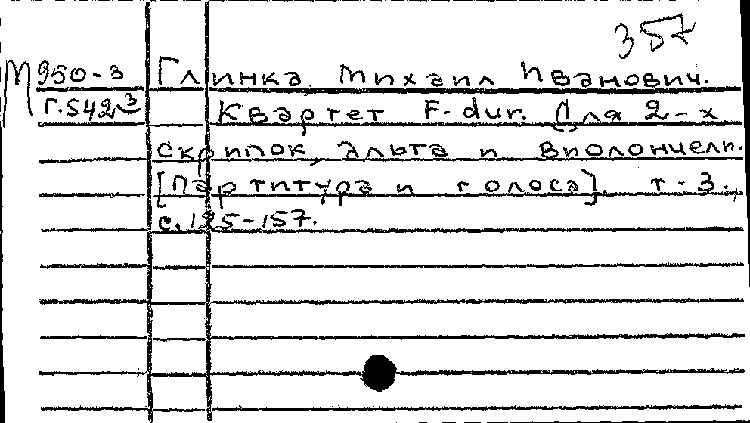 357
М950-3 Глинка, Михаил Иванович.
Г.542³ Квартет F-dur. Для 2-х
скрипок, альта и виолончели.
[Партитура и голоса]. т-3.,
с.125-157.